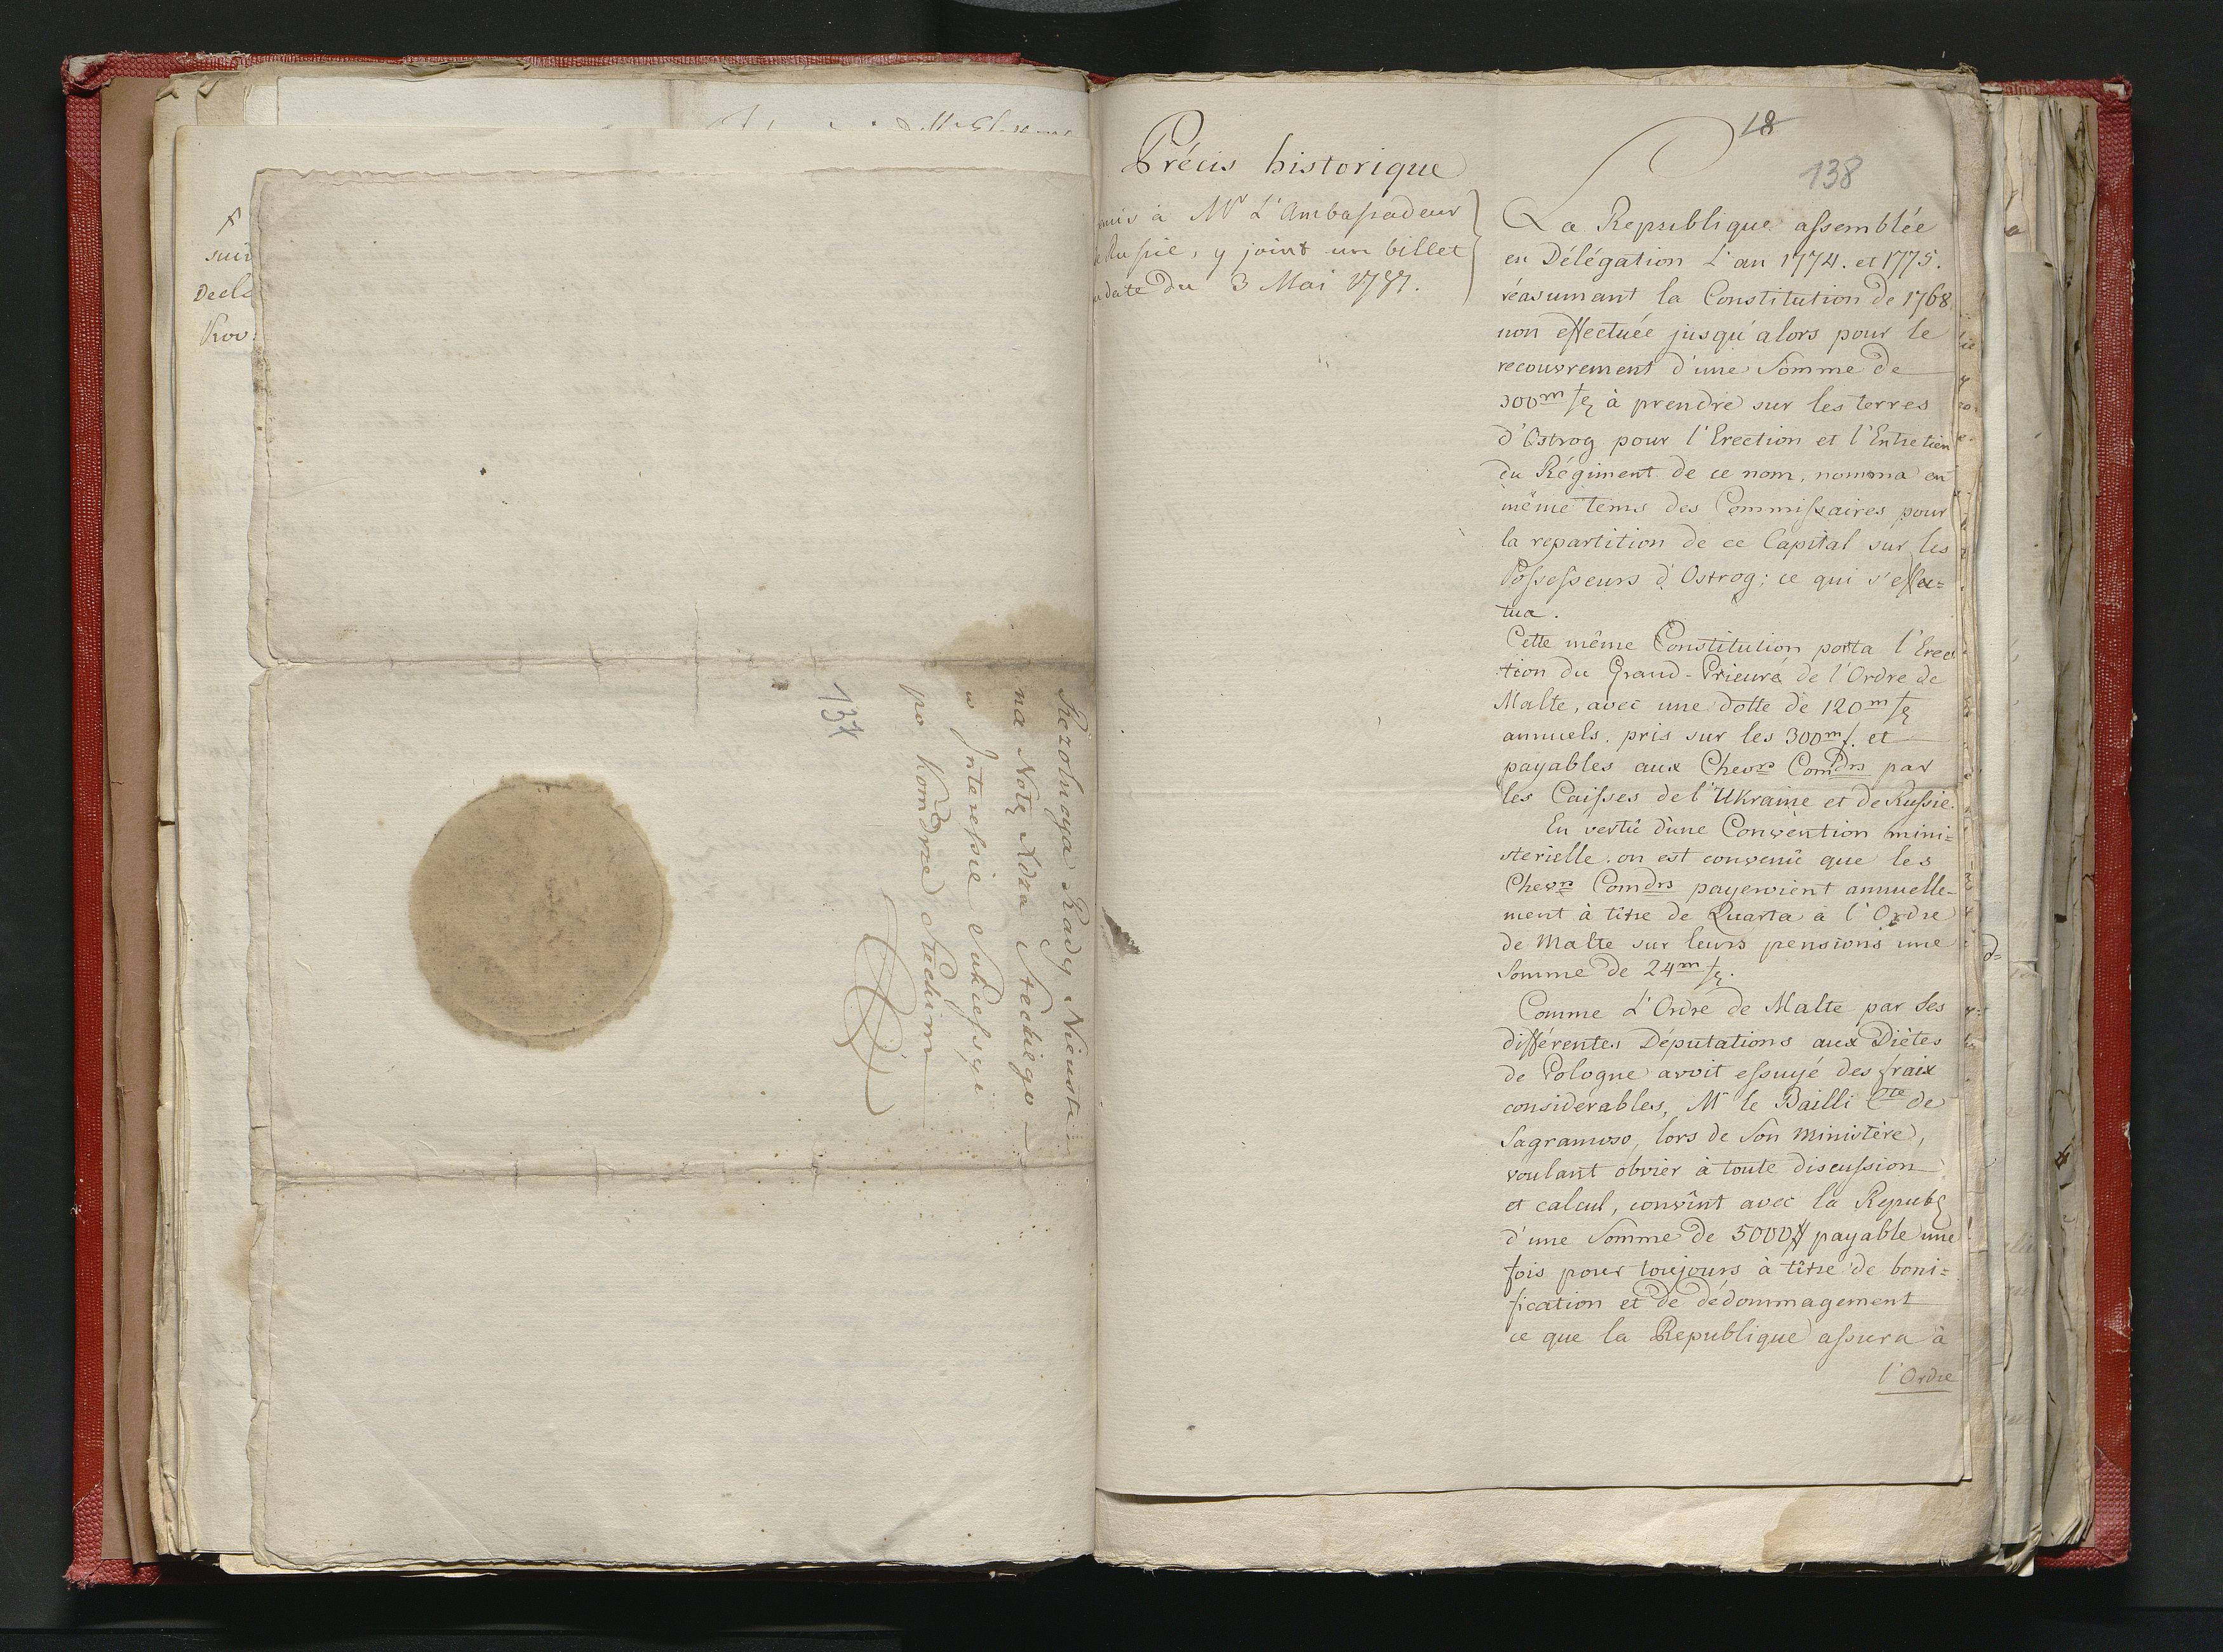 suit
Decla
Rezolucya Rady Nieusta
na Notę Xdza Steckiego —
w Interessie Sukcessyi
po Komdrze Steckim
137
18
138
Précis historique
remis à Mr L'Ambassadeur
de Russie, y joint un billet
en date du 3 Mai 1787.
La Republique assemblée
en Délégation L'an 1774. et 1775.
réasumant la Constitution de 1768
non effectuée jusqu'alors pour le
recouvrement d'une Somme de
300m f. à prendre sur les terres
d'Ostrog pour l'Erection et l'Entretien
du Régiment de ce nom, nomma en
même tems des Commissaires pour
la repartition de ce Capital sur les
Possesseurs d'Ostrog; ce qui s'effec=
tua.
Cette même Constitution porta l'Erec
tion du Grand-Prieuré de l'Ordre de
Malte, avec une dotte de 120m f.
annuels. pris sur les 300m f. et
payables aux Chevrs Comdrs par
les Caisses de l'Ukraine et de Russie.
En vertû d'une Convention mini=
sterielle. on est convenû que les
Chevrs Comdrs payeroient annuelle-
ment à titre de Quarta à l'Ordre
de Malte sur leurs pensions une
Somme de 24m f.
Comme L'Ordre de Malte par ses
différentes Députations aux Diètes
de Pologne avoit essuyé des fraix
considérables, Mr le Bailli Cte de
Sagramoso, lors de Son Ministère,
voulant obvier à toute discussion
et calcul, convint avec la Republ
d'une Somme de 5000 # payable une
fois pour toujours à titre de boni=
fication et de dédommagement
ce que la Republique assura à
l'Ordre